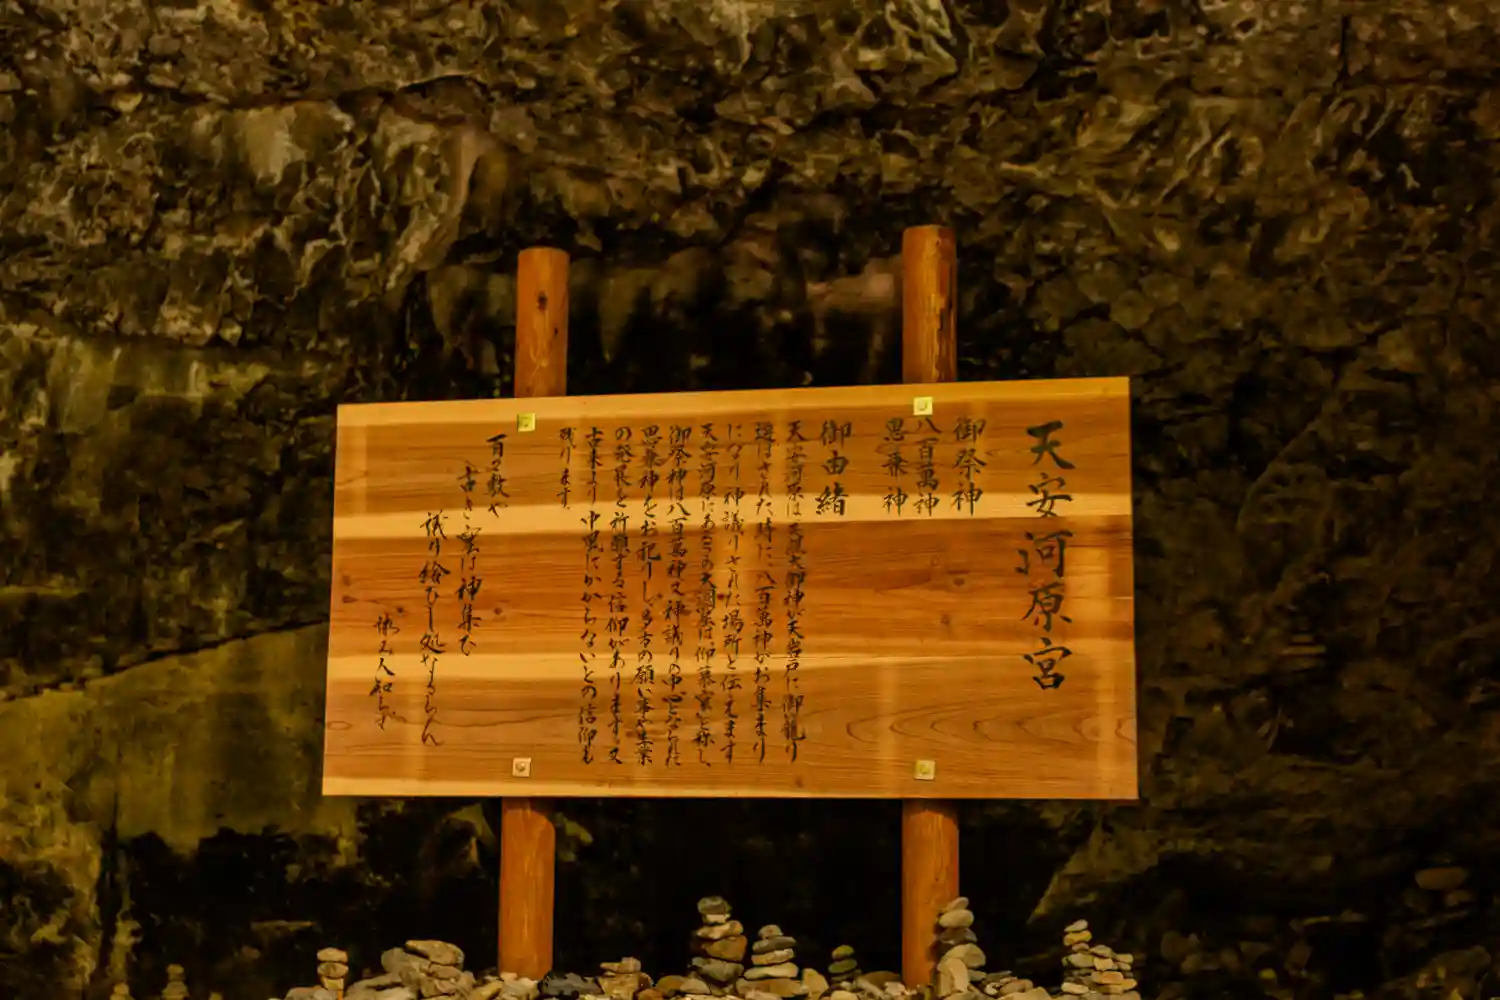 天安河原宮
御祭神
八百萬神
思兼神
御由緒
天安河原は天照大御神が天岩戸に御籠り
遊ばされた時に、八百萬神がお集まり
になり神議りされた場所と伝えます
天安河原にあるこの大洞窟は仰慕窟と称し、
御祭神は八百萬神又神議りの中心となられた
思兼神をお祀りし、多方の願い事と
の発展を祈願する信仰があります。又
古来より中風にかからないとの信仰も
残ります。
百々敷や
古き窟は神集ひ
議り給ひし処なるらん
人知らず